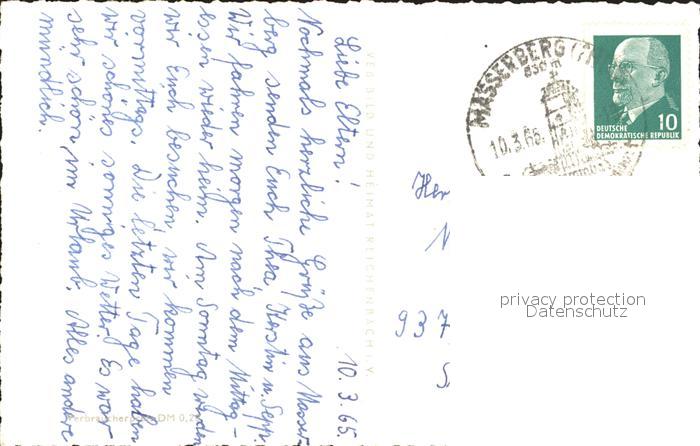 10.3.65.
Liebe Eltern!
Nochmals herzliche Grüße aus Masser-
berg senden Euch Thea, Kerstin u. Sepp.
Wir fahren morgen nach dem Mittag-
essen wieder heim. Am Sonntag werden
wir Euch besuchen, wir kommen
vormittags. Die letzten Tage haben
wir schönes sonniges Wetter. Es war
sehr schön im Urlaub. Alles andere
mündlich.
VEB BILD UND HEIMAT REICHENBACH I. V.
Verbraucherpreis DM 0,2
MASSERBERG (TH
10.3.65
10
DEUTSCHE
DEMOKRATISCHE REPUBLIK
Her
937
privacy protection
Datenschutz